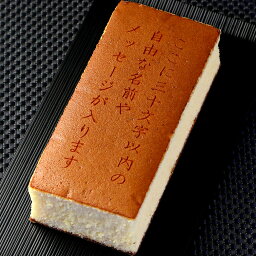 ここに三十文字以内の
自由な名前や
メッセージが入ります